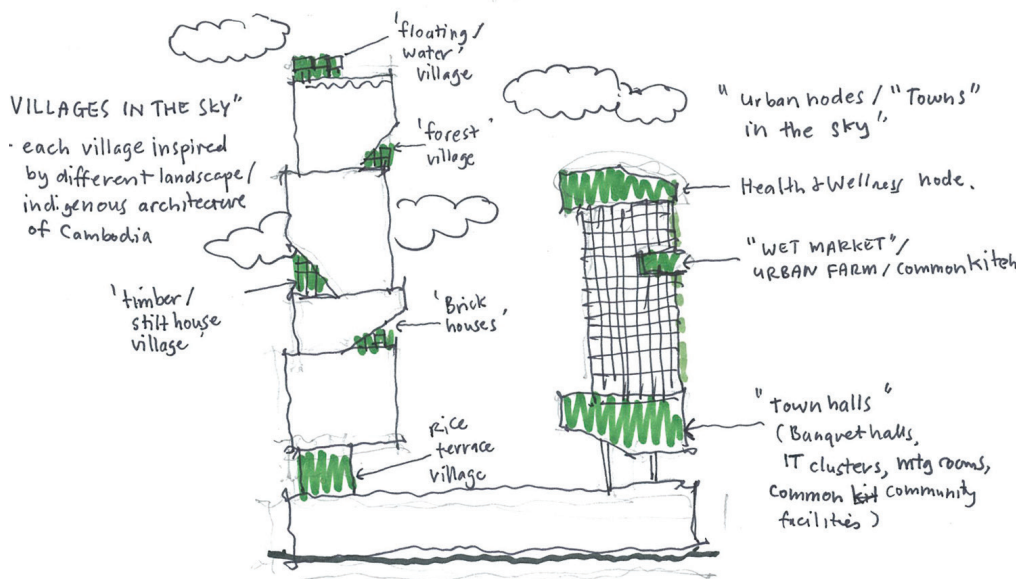 VILLAGES IN THE SKY"
- each village inspired
by different landscape/
indigenous architecture
of Cambodia
'floating/
water'
village
'forest'
village
'timber/
stilt house
village'
'Brick
houses'
Rice
terrace
village
"urban nodes / "Towns"
in the sky"
Health & Wellness node.
"WET MARKET"/
URBAN FARM/common kitch
"Town halls"
(Banquet halls,
IT clusters, mtg rooms,
common kit community
facilities)